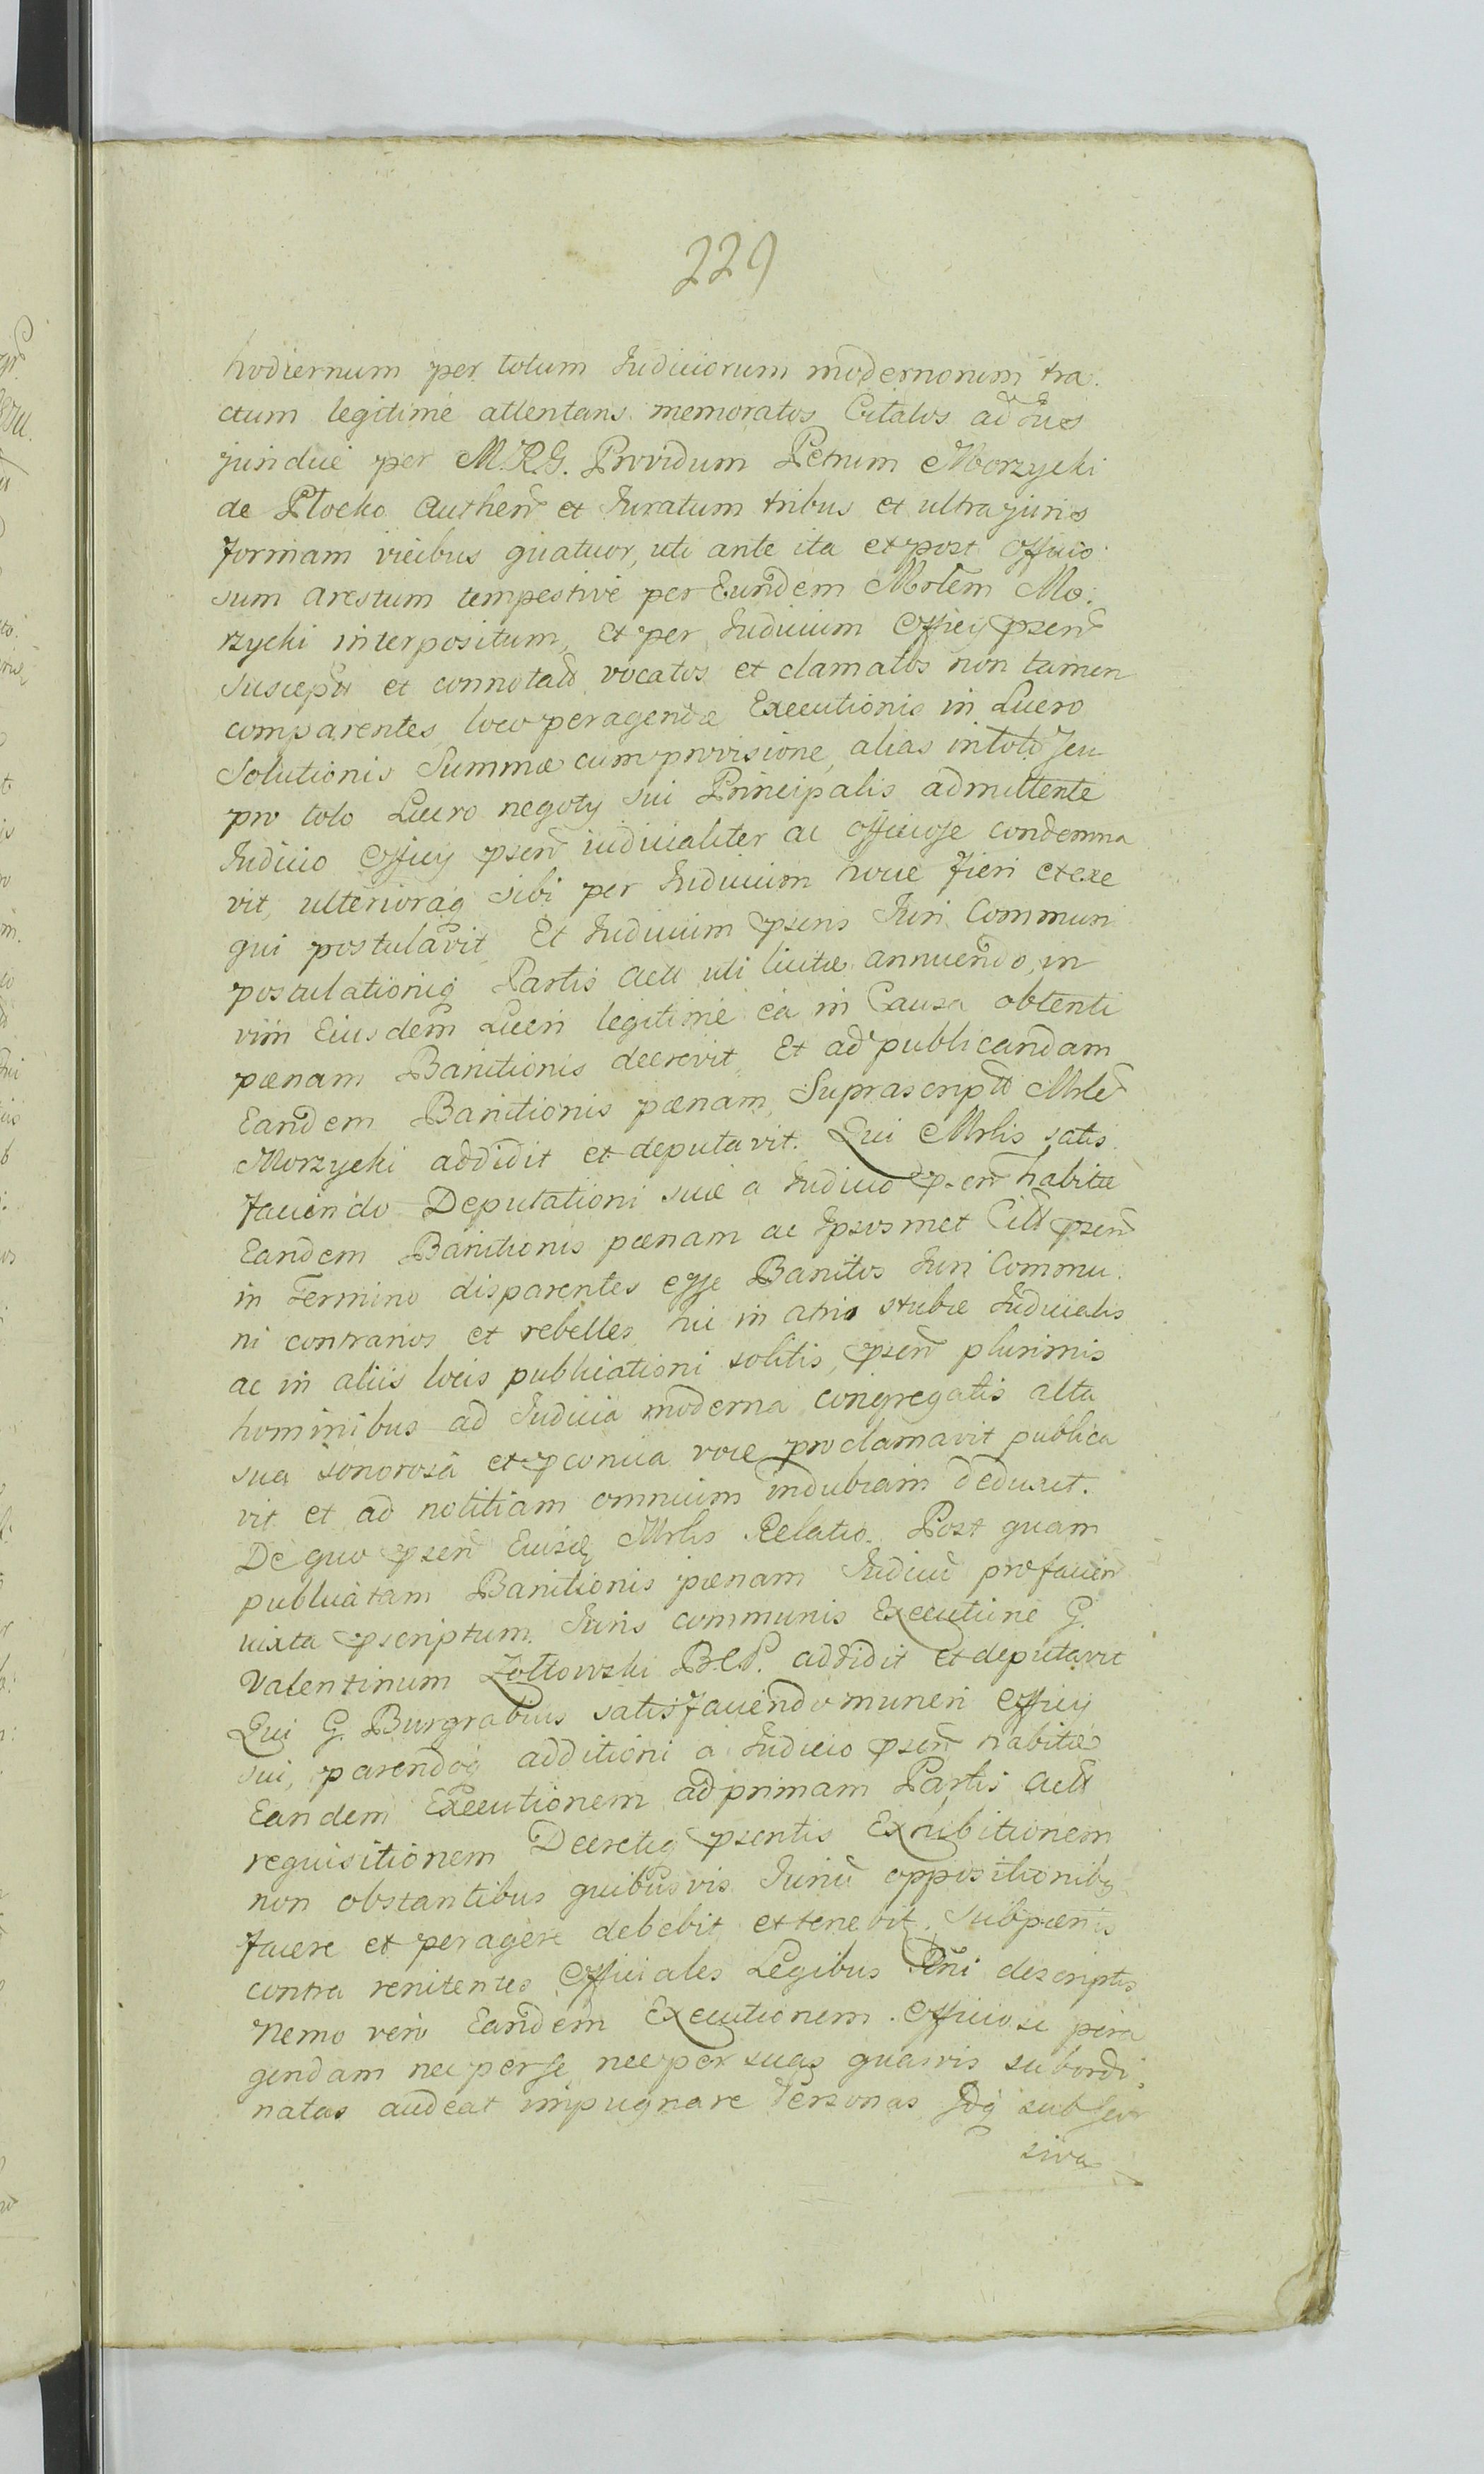 229
hodiernum per totum Iudiciorum modernorum tra:
ctum legitime attentans memoratos Citatos ad
juridice per M.R.G. Providum Petrum Morzycki
de Plocko Authen et Iuratum tribus et ultra juris
formam vicibus quatuor, uti ante ita et post officio:
sum arestum tempestive per Eundem Mrlem Mo:
rzycki interpositum, et per Iudicium Officij psen
suscept et connotat vocatos et clamatos non tamen
comparentes, loco peragendæ Executionis in Lucro
Solutionis Summæ cum provisione, alias in toto seu
pro toto Lucro negotij sui Principalis admittente
Iudicio Officij psen iudicialiter ac officiose condemna
vit, ulterioraq sibi per Iudicium hocce fieri et exe
qui postulavit, Et Iudicium psens Iuri Communi
postulationiq Partis Act uti licitæ annuendo, in
vim Eiusdem Lucri legitime ea in Causa obtenti
pænam Banitionis decrevit, Et ad publicandam
Eandem Banitionis pænam Suprascript Mrle
Morzycki addidit et deputavit. Qui Mrlis satis
faciendo Deputationi suæ a Iudicio psen habitæ
Eandem Banitionis pænam ac Ipsosmet Citt psen
in Termino disparentes esse Banitos Iuri Commu:
ni contrarios et rebelles, hic in atrio stubæ Iudicialis
ac in aliis locis publicationi solitis, psen plurimis
hominibus ad Iudicia moderna congregatis alta
sua sonorosa et pconica voce proclamavit publica
vit et ad notitiam omnium indubiam deduxit.
De quo psen Eiusd Mrlis Relatio. Post quam
publicatam Banitionis pænam Iudiciu pro facien
iuxta pscriptum Iuris communis Executione G.
Valentinum Żołtowski B.C.P. addidit et deputavit
Qui G. Burgrabius satisfaciendo muneri Officij
sui, parendoq additioni a Iudicio psen habitæ
Eandem Executionem ad primam Partis Act
requisitionem Decretiq psentis Exhibitionem
non obstantibus quibusvis Iuriu oppositionibq
facere et peragere debebit et tenebit, sub pænis
contra renitentes Officiales Legibus Rni descriptis
Nemo vero Eandem Executionem officiose pera
gendam nec per se nec per suas quasvis subordi:
natas audeat impugnare Personas Idq sub
siva